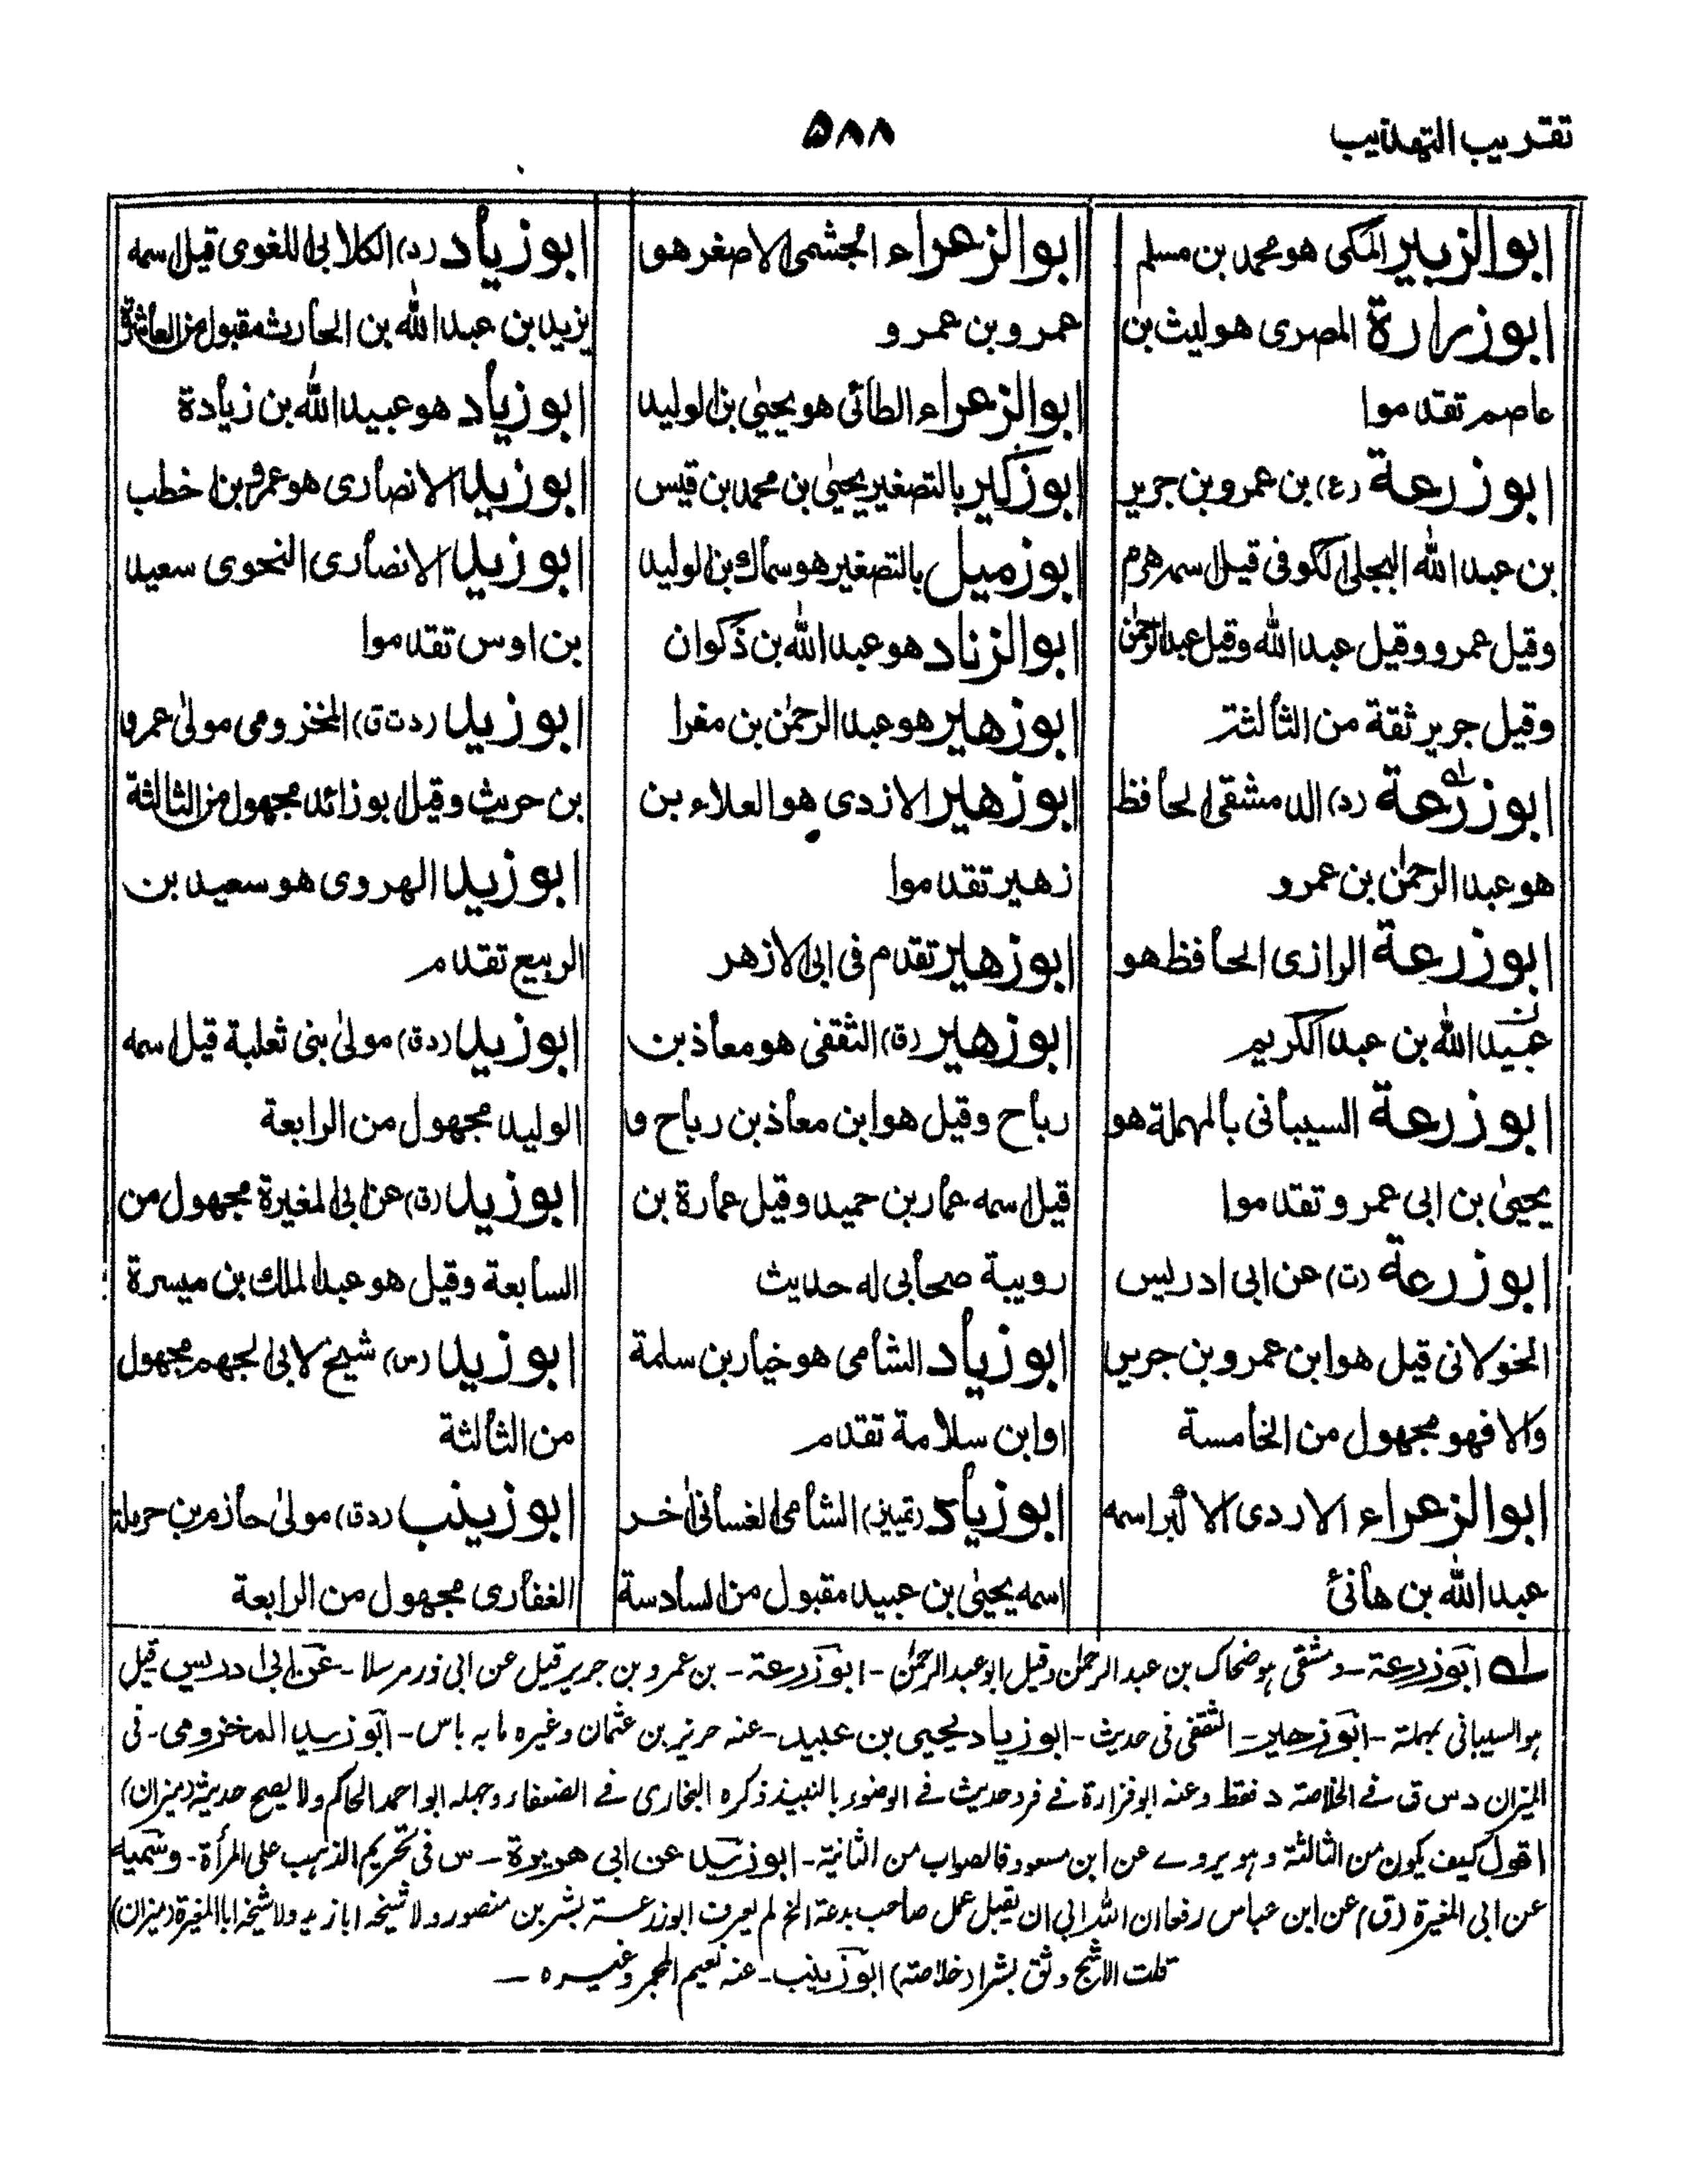 تقريب التهذيب
٥٨٨
ابو الزبير المكى هو محمد بن مسلم
ابو زرارة المصرى هو ليث بن
عاصم تقدموا
ابو زرعة (ع) بن عمرو بن جرير
بن عبد الله البجلى الكوفى قيل اسمه هرم
وقيل عمرو وقيل عبد الله وقيل عبد الرحمٰن
وقيل جرير ثقة من الثالثة
ابو زرعة له (د) الدمشقى الحافظ
هو عبد الرحمٰن بن عمرو
ابو زرعة الرازى الحافظ هو
عبيد الله بن عبد الكريم
ابو زرعة السيبانى بالمهملة هو
يحيىٰ بن ابى عمرو تقدموا
ابو زرعة (ت) عن ابى ادريس
الخولانى قيل هو ابن عمرو بن جرير
والا فهو مجهول من الخامسة
ابو الزعراء الازدى الاكبر اسمه
عبد الله بن هانئ
ابو الزعراء الجشمى الاصغر هو
عمرو بن عمرو
ابو الزعراء الطائى هو يحيىٰ بن الوليد
ابو زكير بالتصغير يحيىٰ بن محمد بن قيس
ابو زميل بالتصغير هو سماك بن الوليد
ابو الزناد هو عبد الله بن ذكوان
ابو زهير هو عبد الرحمٰن بن مغرا
ابو زهير الازدى هو العلاء بن
زهير تقدموا
ابو زهير تقدم فى ابى الازهر
ابو زهير (ق) الثقفى هو معاذ بن
رباح وقيل هو ابن معاذ بن رباح و
قيل اسمه عمار بن حميد وقيل عمارة بن
رويبة صحابى له حديث
ابو زياد الشامى هو خيار بن سلمة
او ابن سلامة تقدم
ابو زياد (تمييز) الشامى الغسانى اخر
اسمه يحيىٰ بن عبيد مقبول من السادسة
ابو زياد (د) الكلابى اللغوى قيل اسمه
يزيد بن عبد الله بن الحارث مقبول من العاشرة
ابو زياد هو عبيد الله بن زيادة
ابو زيد الانصارى هو عمرو بن اخطب
ابو زيد الانصارى النحوى سعيد
بن اوس تقدموا
ابو زيد (د ت ق) المخزومى مولىٰ عمرو
بن حريث وقيل ابو زائد مجهول من الثالثة
ابو زيد الهروى هو سعيد بن
الربيع تقدم
ابو زيد (د ق) مولىٰ بنى ثعلبة قيل اسمه
الوليد مجهول من الرابعة
ابو زيد (ق) عن ابى المغيرة مجهول من
السابعة وقيل هو عبد الملك بن ميسرة
ابو زيد (س) شيخ لابى الجهم مجهول
من الثالثة
ابو زينب (د ق) مولىٰ حازم بن حرملة
الغفارى مجهول من الرابعة
له ابو زرعة - دمشقى ہو ضحاك بن عبد الرحمٰن وقيل ابو عبد الرحمٰن - ابو زرعة - بن عمرو بن جرير قيل عن ابى ذر مرسلا - عن ابى ادريس قيل
ہو السيبانى بمہملة - ابو زهير - الثقفى فى حديث - ابو زياد يحيى بن عبيد - عنه حريز بن عثمان وغيره ما به باس - ابو زيد المخزومى - فى
الميزان د س ق فے الخلاصة د فقط وعنه ابو فزارة فے فرد حديث فے الوضوء بالنبيذ ذكره البخارى فے الضعفاء وجهله ابو احمد الحاكم ولا يصح حديثه (ميزان)
اقول كيف يكون من الثالثة وہو يروے عن ابن مسعود فالصواب من الثانية - ابو زيد عن ابى هريرة - س فى تحريم الذہب على المرأة - وسميه
عن ابى المغيرة (ق) عن ابن عباس رفعا ان الله ابى ان يقبل عمل صاحب بدعة الخ لم يعرف ابو زرعة بشر بن منصور ولا شيخه ابا زيد ولا شيخه ابا المغيرة (ميزان)
قلت الاشج وثق بشرا (خلاصة) ابو زينب - عنه نعيم المجمر وغيره -